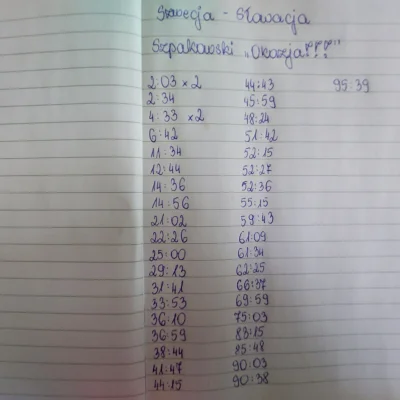 Szwecja - Słowacja
Szpakowski "Okazja!!!"
2:03 x2
2:34
4:33 x2
6:42
11:34
12:44
14:36
14:56
21:02
22:26
25:00
29:13
31:41
33:53
36:10
36:59
38:44
41:47
44:15
44:43
45:59
48:24
51:42
52:15
52:27
52:36
55:15
59:43
61:09
61:34
62:25
66:37
69:59
75:03
83:15
85:48
90:03
90:38
95:39